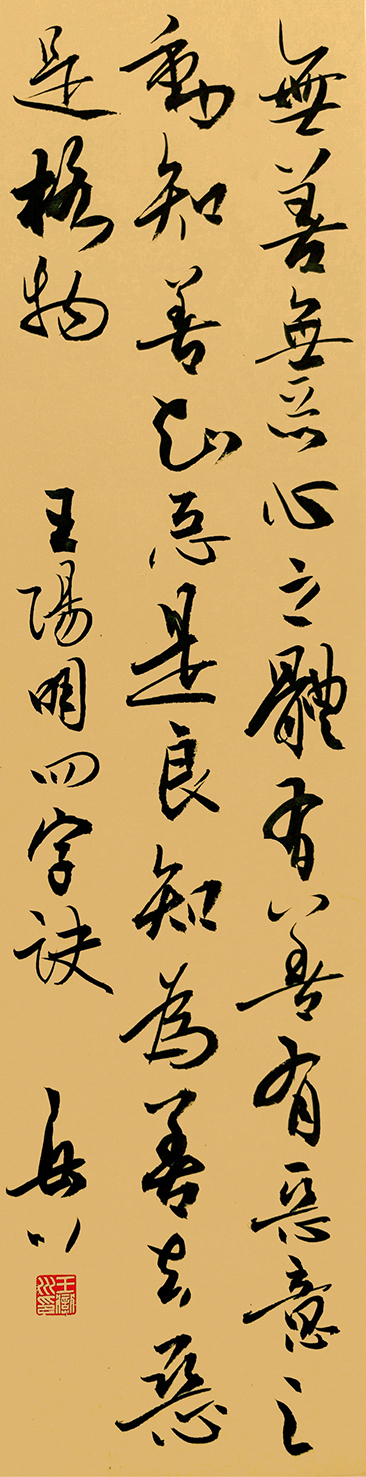 無善無惡心之體有善有惡意之
動知善知惡是良知為善去惡
是格物 王陽明四字訣 岳川
王嶽川印